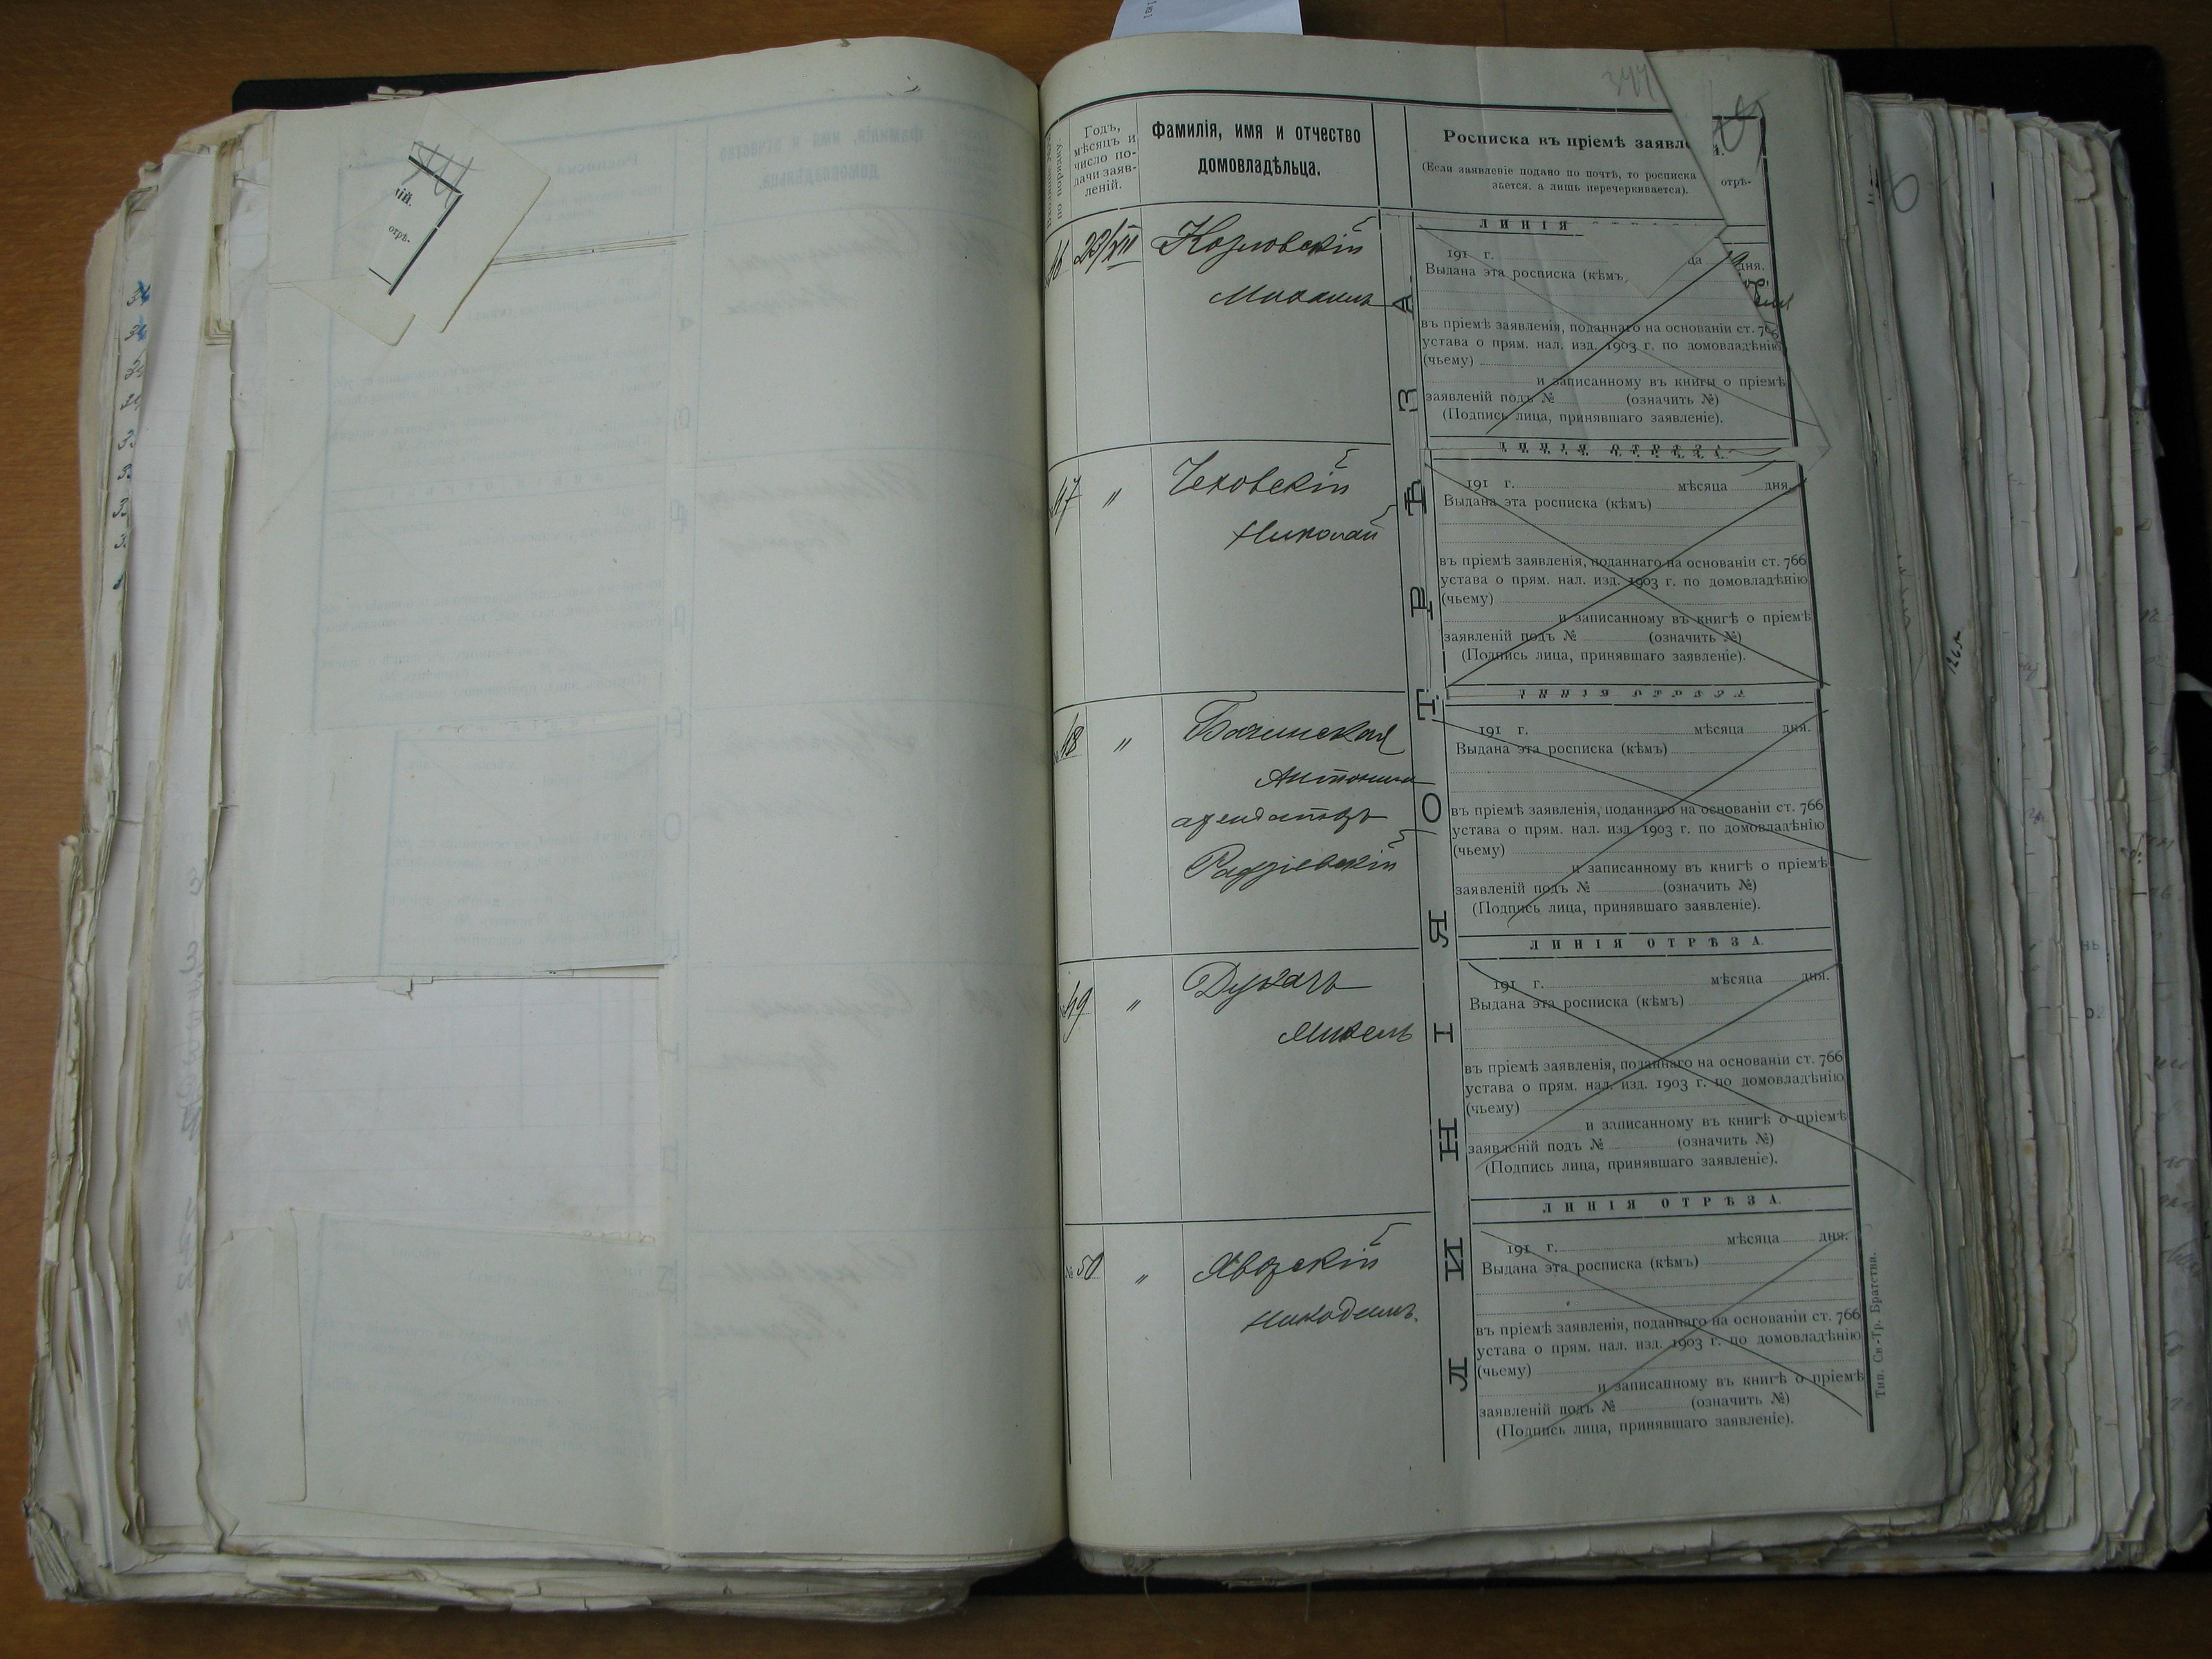 Годъ, мѣсяцъ и число подачи заявленій.
Фамилія, имя и отчество
домовладѣльца.
Росписка въ пріемѣ заявле
(Если заявленіе подано по почтѣ, то росписка
зается, а лишь перечеркивается).
отрѣ-
46 23/XII Козловскій
Михаилъ
ЛИНІЯ
191 г. дня.
Выдана эта росписка (кѣмъ,
въ пріемѣ заявленія, поданнаго на основаніи ст. 766
устава о прям. нал. изд. 1903 г. по домовладѣнію
(чьему)
и записанному въ книгы о пріемѣ
заявленій подъ № (означить №)
(Подпись лица, принявшаго заявленіе).
ЛИНІЯ ОТРѢЗА.
47 " Чеховскій
Николай
191 г. мѣсяца дня.
Выдана эта росписка (кѣмъ)
въ пріемѣ заявленія, поданнаго на основаніи ст. 766
устава о прям. нал. изд. 1903 г. по домовладѣнію
(чьему)
и записанному въ книгѣ о пріемѣ
заявленій подъ № (означить №)
(Подпись лица, принявшаго заявленіе).
ЛИНІЯ ОТРѢЗА
48 " Бачинская
Антонина
арендаторъ
Радзіевскій
191 г. мѣсяца дня.
Выдана эта росписка (кѣмъ)
въ пріемѣ заявленія, поданнаго на основаніи ст. 766
устава о прям. нал. изд 1903 г. по домовладѣнію
(чьему)
и записанному въ книгѣ о пріемѣ
заявленій подъ № (означить №)
(Подпись лица, принявшаго заявленіе).
ЛИНІЯ ОТРѢЗА.
49 " Духачъ
Михель
191 г. мѣсяца дня.
Выдана эта росписка (кѣмъ)
въ пріемѣ заявленія, поданнаго на основаніи ст. 766
устава о прям. нал. изд. 1903 г. по домовладѣнію
(чьему)
и записанному въ книгѣ о пріемѣ
заявленій подъ № (означить №)
(Подпись лица, принявшаго заявленіе).
ЛИНІЯ ОТРѢЗА.
№ 50 " Яворскій
Никодимъ.
191 г. мѣсяца дня.
Выдана эта росписка (кѣмъ)
въ пріемѣ заявленія, поданнаго на основаніи ст. 766
устава о прям. нал. изд. 1903 г. по домовладѣнію
(чьему)
и записанному въ книгѣ о пріемѣ
заявленій подъ № (означить №)
(Подпись лица, принявшаго заявленіе).
ЛИНІЯ ОТРѢЗА
Тип. Св.-Тр. Братства.